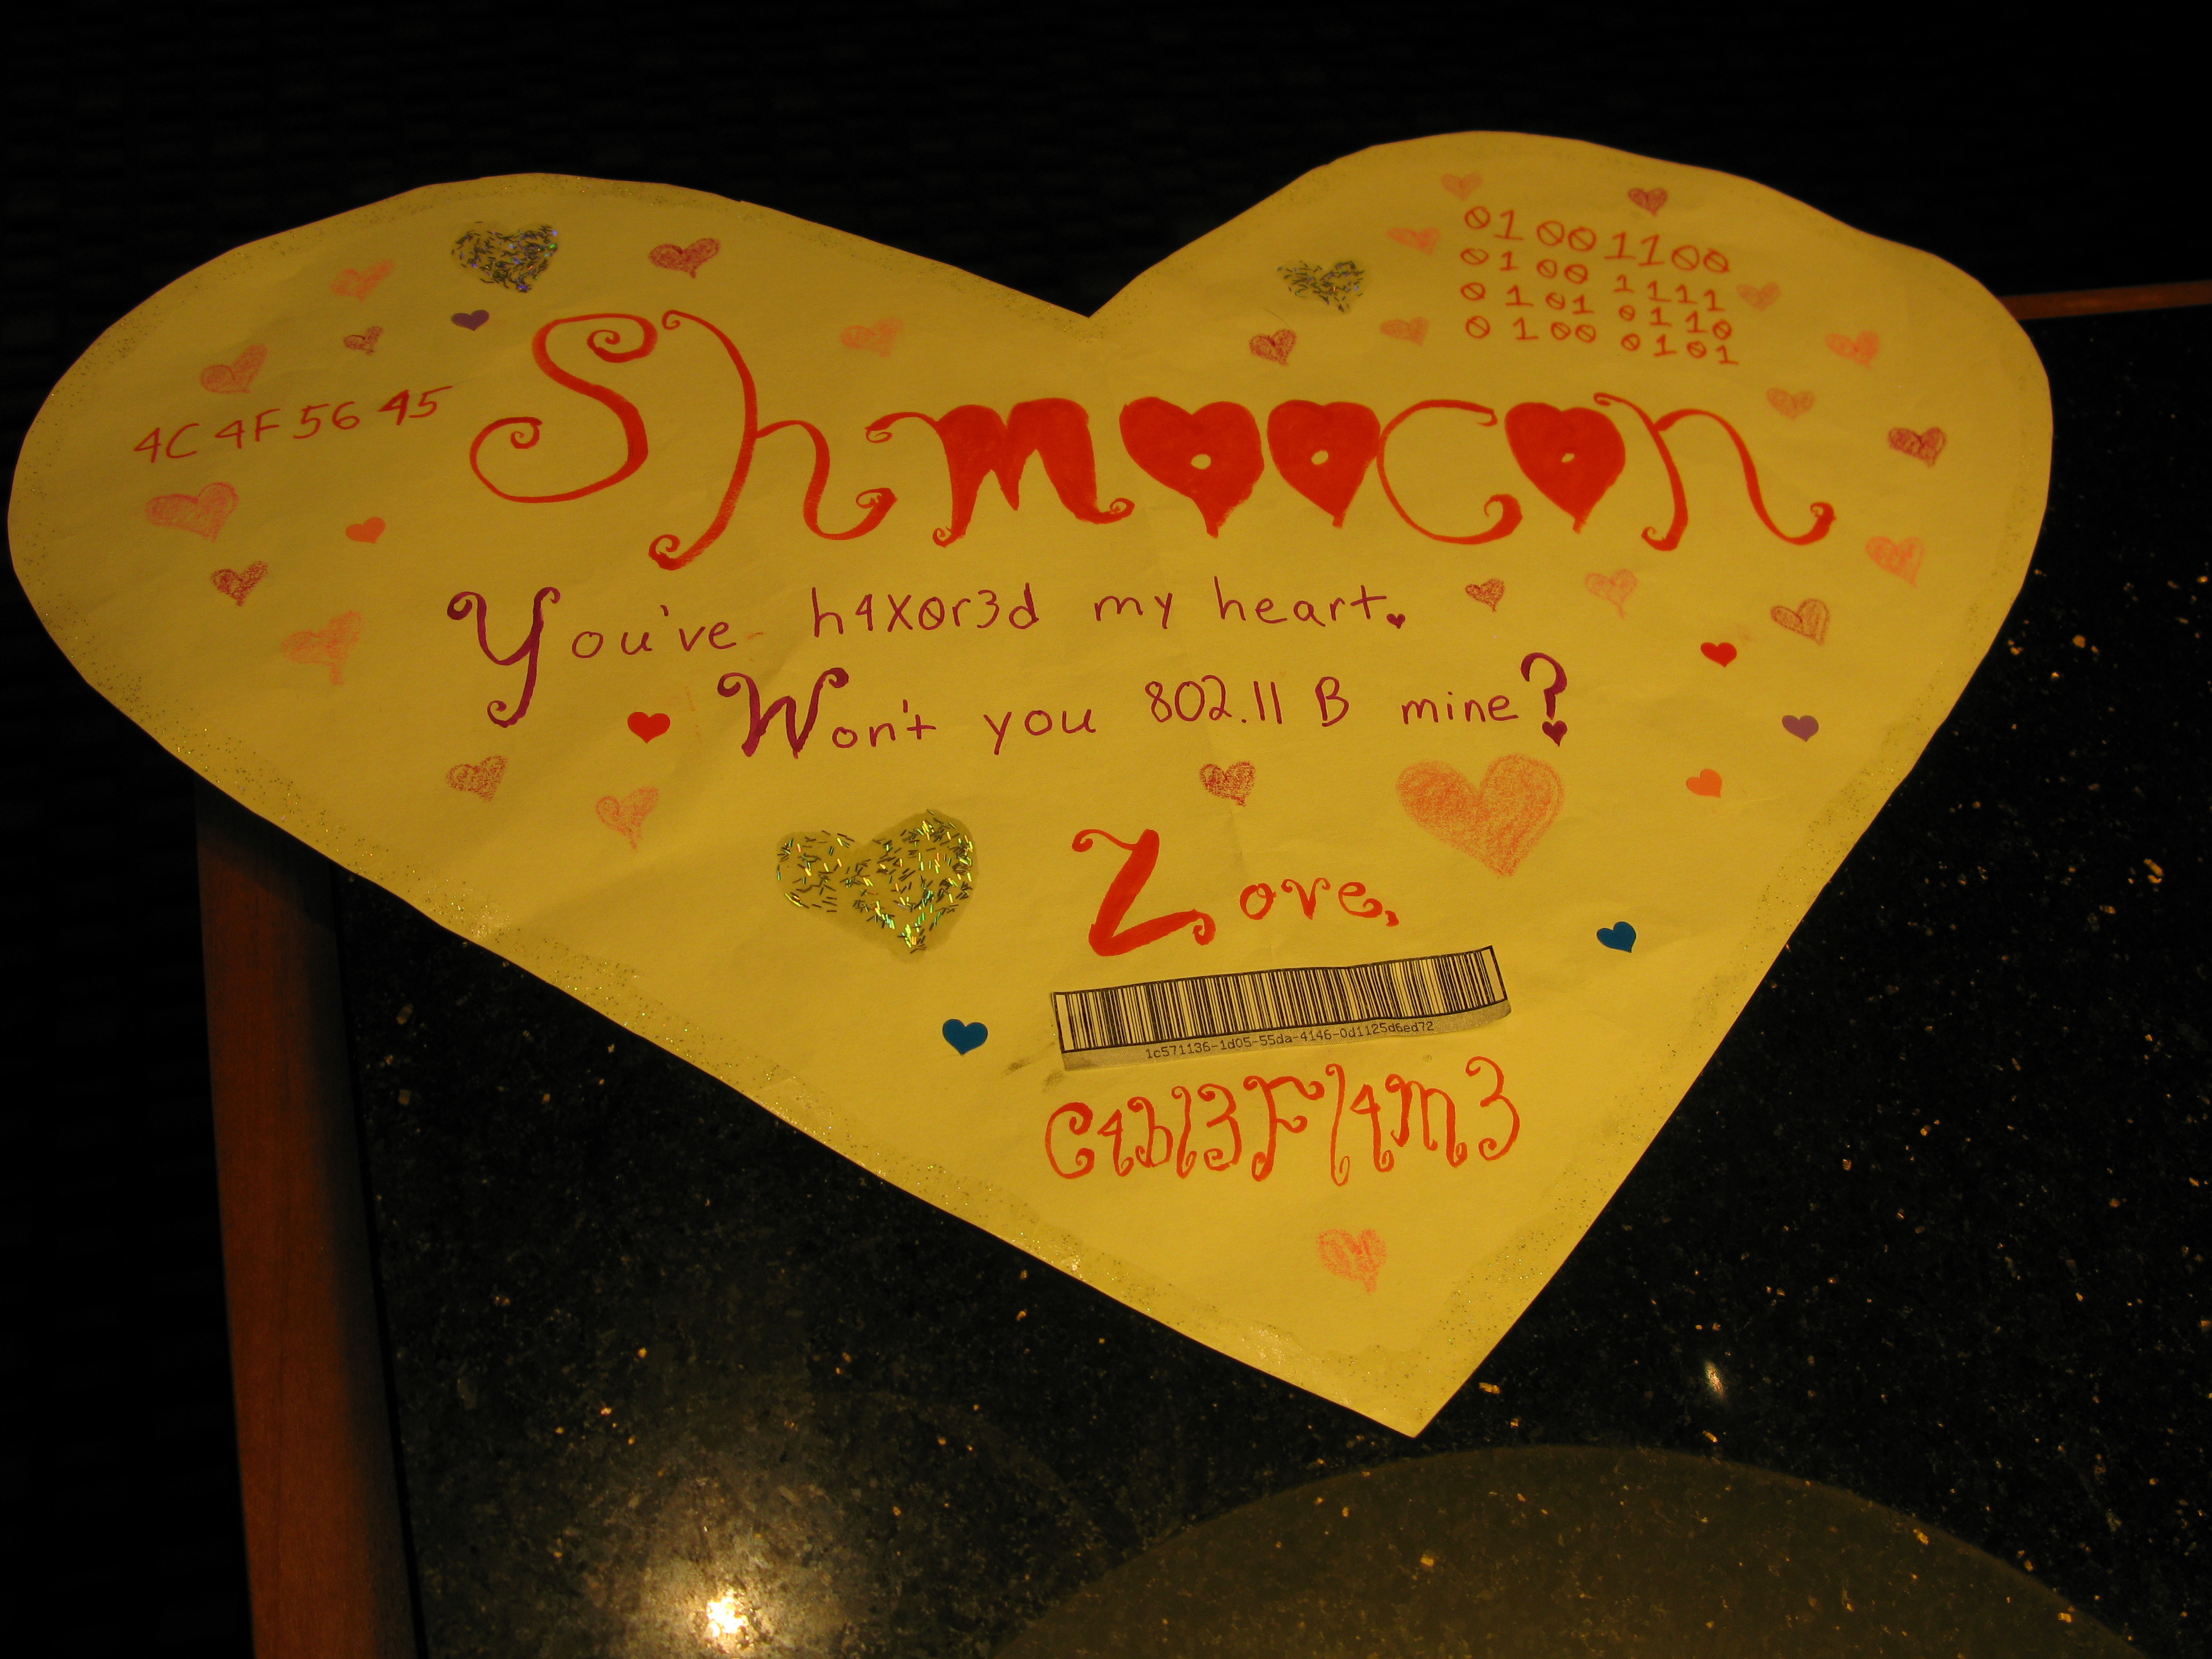 01001100
0100 1111
0101 0110
0100 0101
4C 4F 56 45
Shmoocon
You've h4X0r3d my heart.
Won't you 802.11 B mine?
Love,
1c571136-1d05-55da-4146-0d1125d6ed72
C4bl3Fl4m3